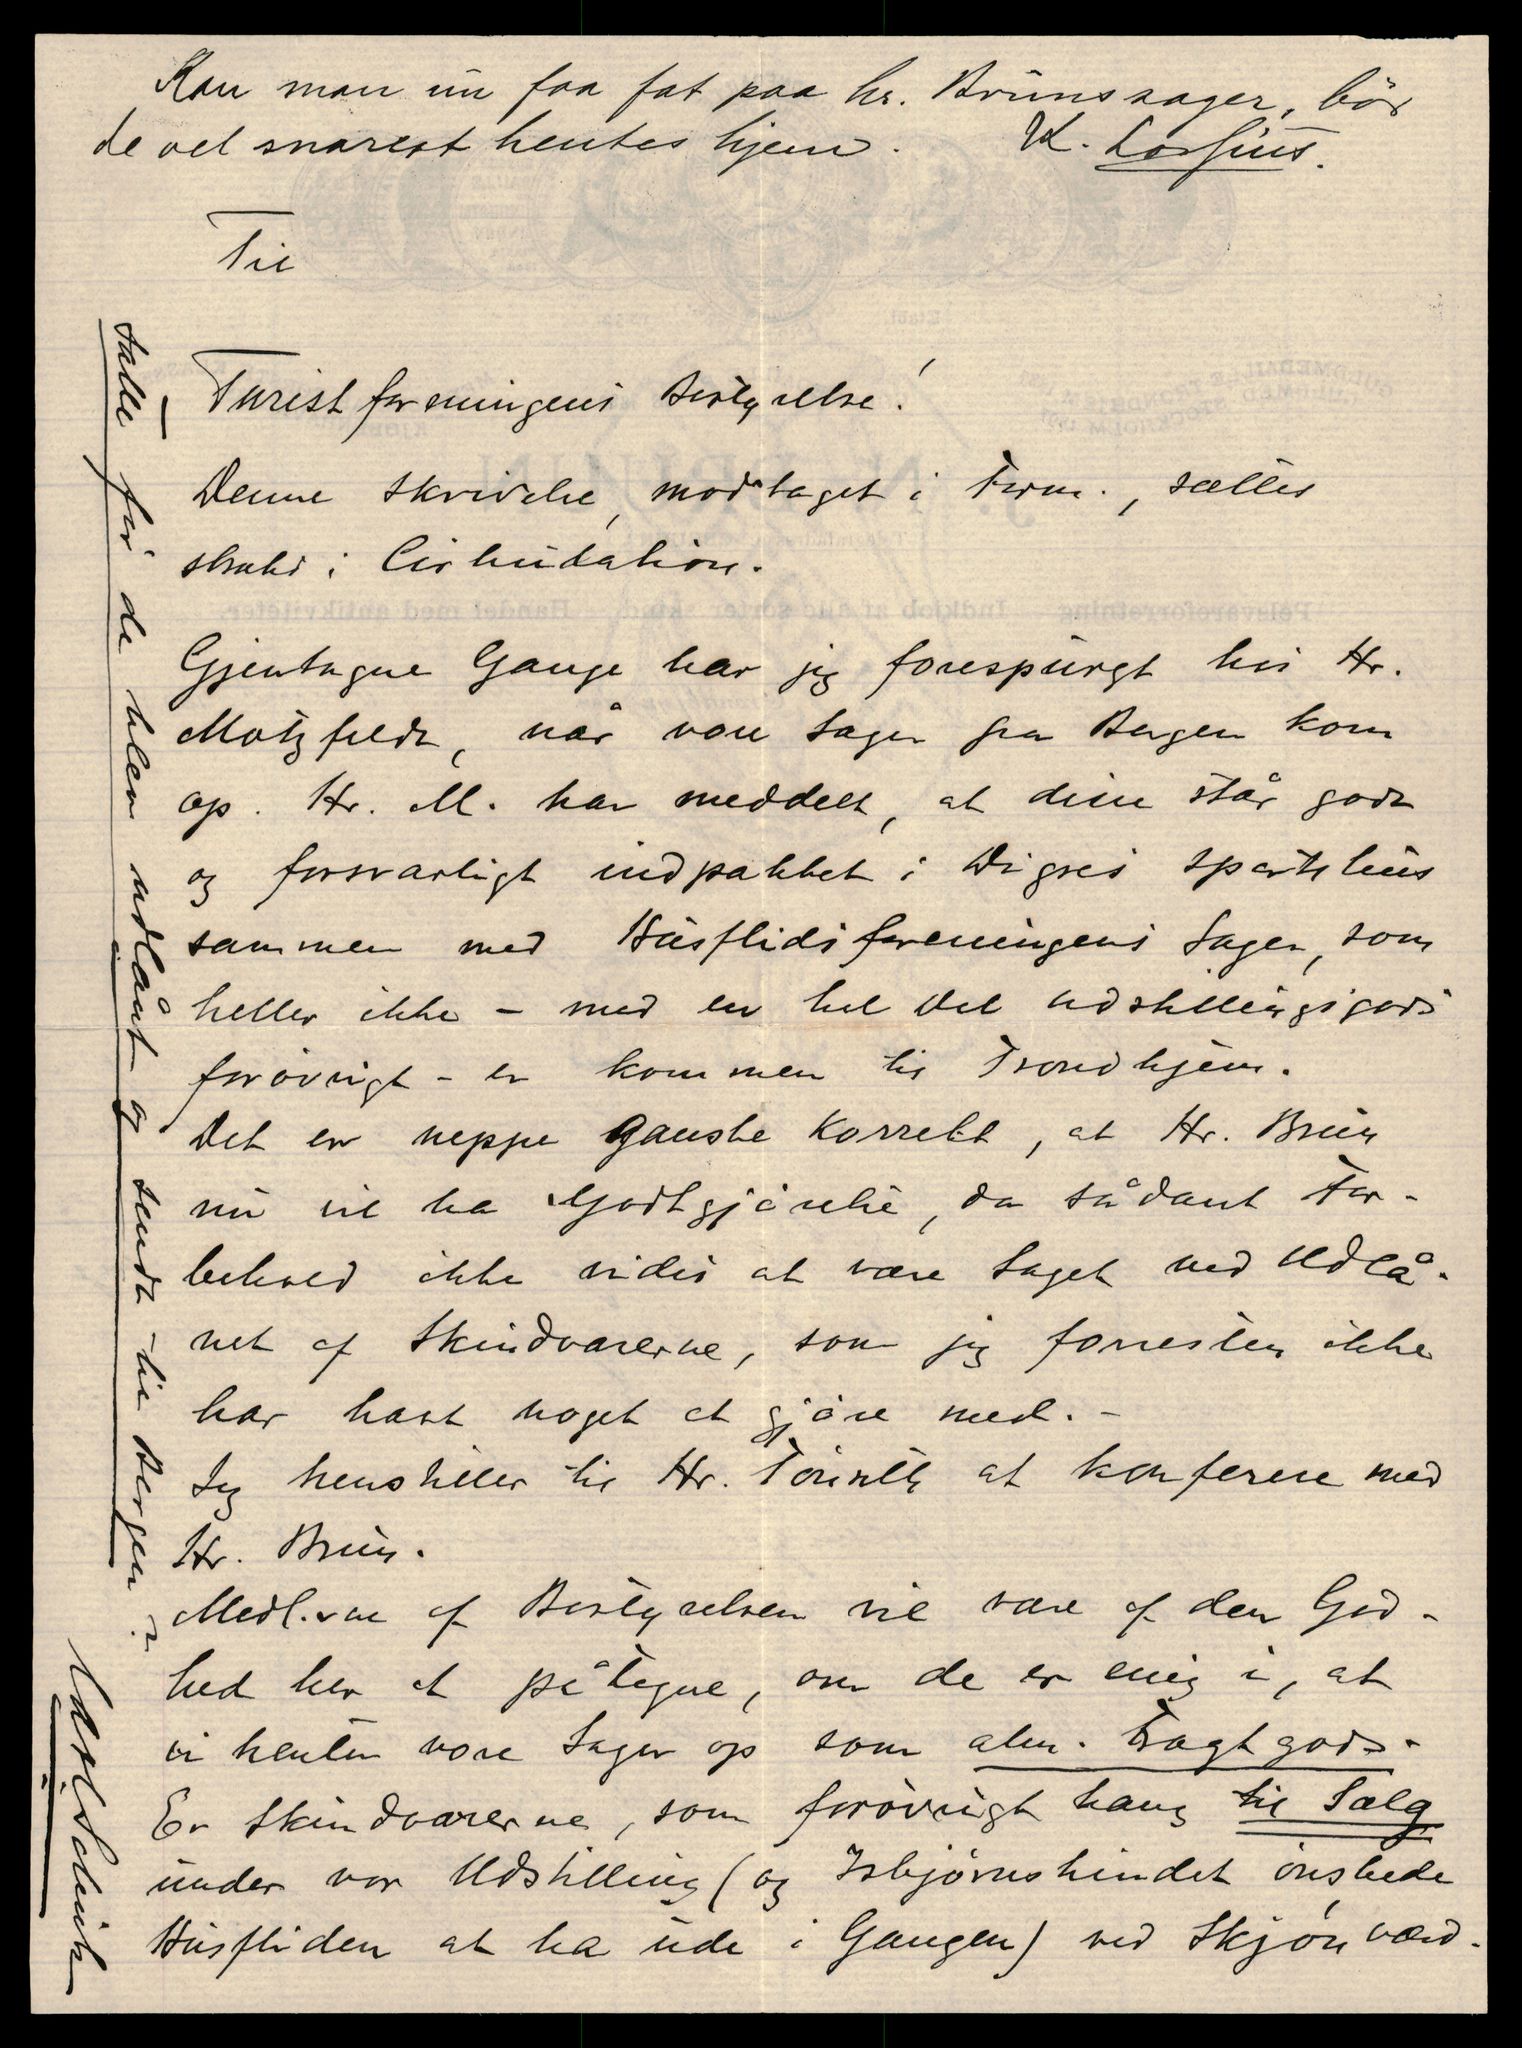 Kan man nu faa fat paa hr. Bruns sager, bör
de vel snarest hentes hjem. K. Lossius.
Til
Turistforeningens Bestyrelse!
Denne Skrivelse, modtaget i Form., sættes
straks i Cirkulation.
Gjentagne Gange har jeg forespurgt hos Hr.
Motzfeldt, når vore Sager fra Bergen kom
op. Hr. M. har meddelt, at disse står godt
og forsvarligt indpakket i Digres Sportshus
sammen med Husflidsforeningens Sager, som
heller ikke – med en hel Del Udstillingsgods
forövrigt – er kommen til Trondhjem.
Det er neppe ganske korrekt, at Hr. Brun
nu vil ha Godtgjörelse, da sådant For-
behold ikke vides at være taget ved Udlå-
net af Skindvarerne, som jeg forresten ikke
har havt noget at gjöre med. –
Jeg henstiller til Hr. at konferere med
Hr. Brun.
Medl.erne af Bestyrelsen vil være af den God-
hed her at påtegne, om de er enig i, at
vi henter vore Sager op som alm. Fragtgods.
Er Skindvarerne, som forövrigt hang til Salg
under vor Udstilling (og Isbjørnskindet önskede
Husfliden at ha ude i Gangen) ved Skjön værd-
satte för de blev udlånt og sendt til Bergen?
Axel Schult